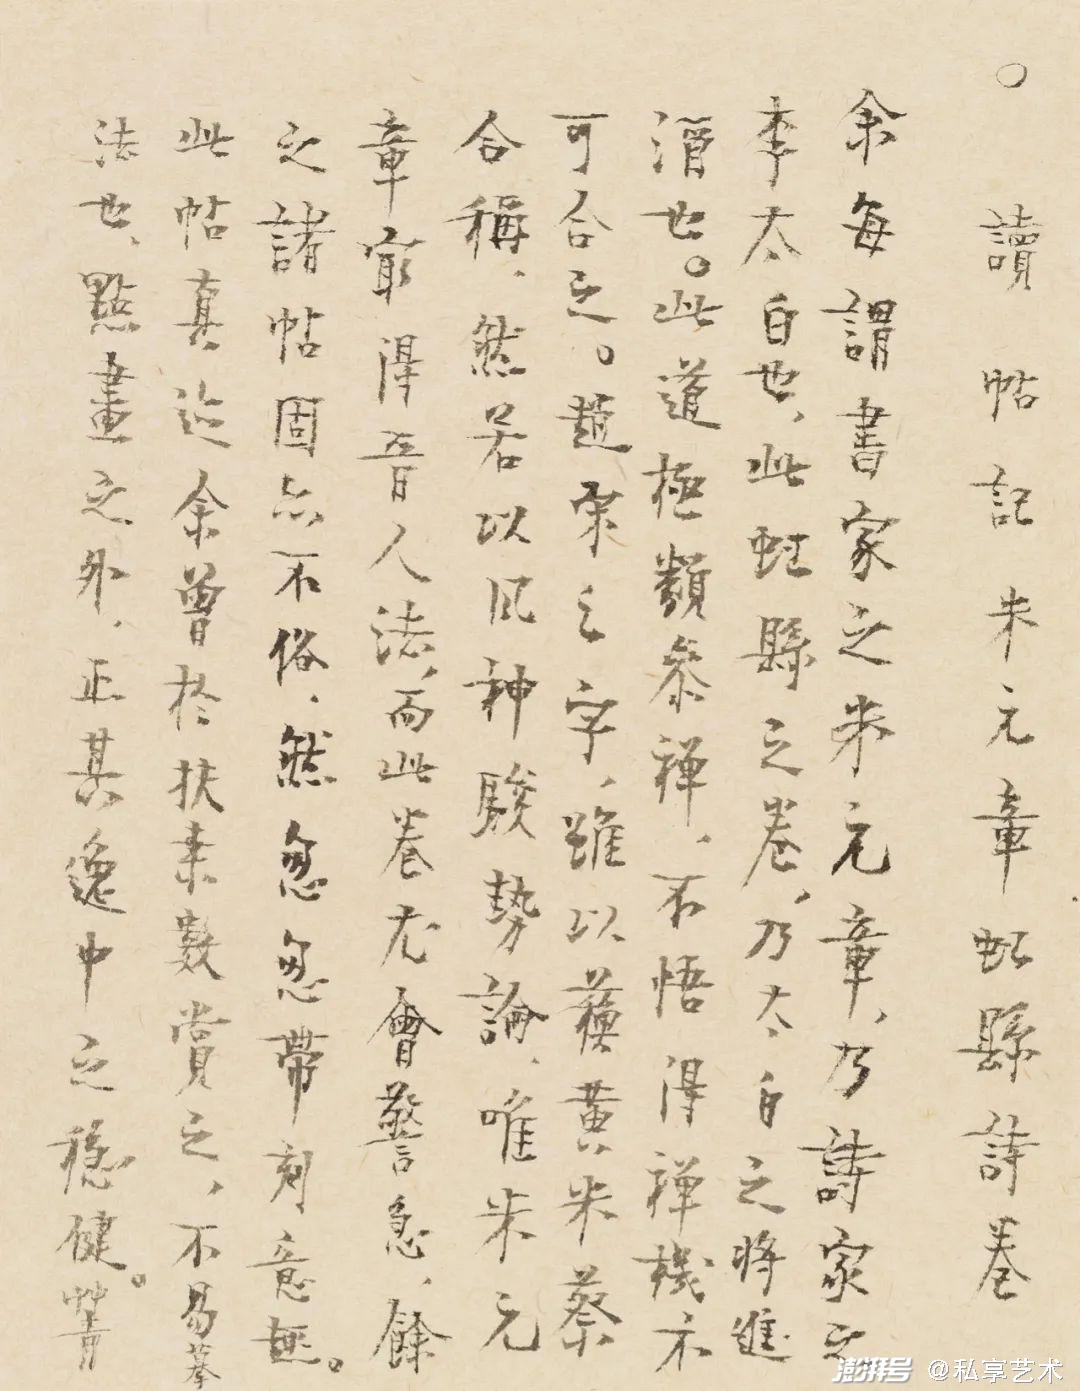 ○讀帖記米元章虹縣詩卷
余每謂書家之米元章,乃詩家之
李太白也、此虹縣之卷,乃太白之將進
酒也。此道極類參禪,不悟得禪機不
可合之。趙宋之字,雖以蘇黃米蔡
合稱,然若以風神駿勢論,唯米元
章最得晉人法,而此卷尤會警急,餘
之諸帖固亦不俗,然忽忽帶刻意趣。
此帖真迹余曾於扶桑數賞之,不易摹
法也、點畫之外,正其逸中之穩健。箐
澎湃号 @私享艺术